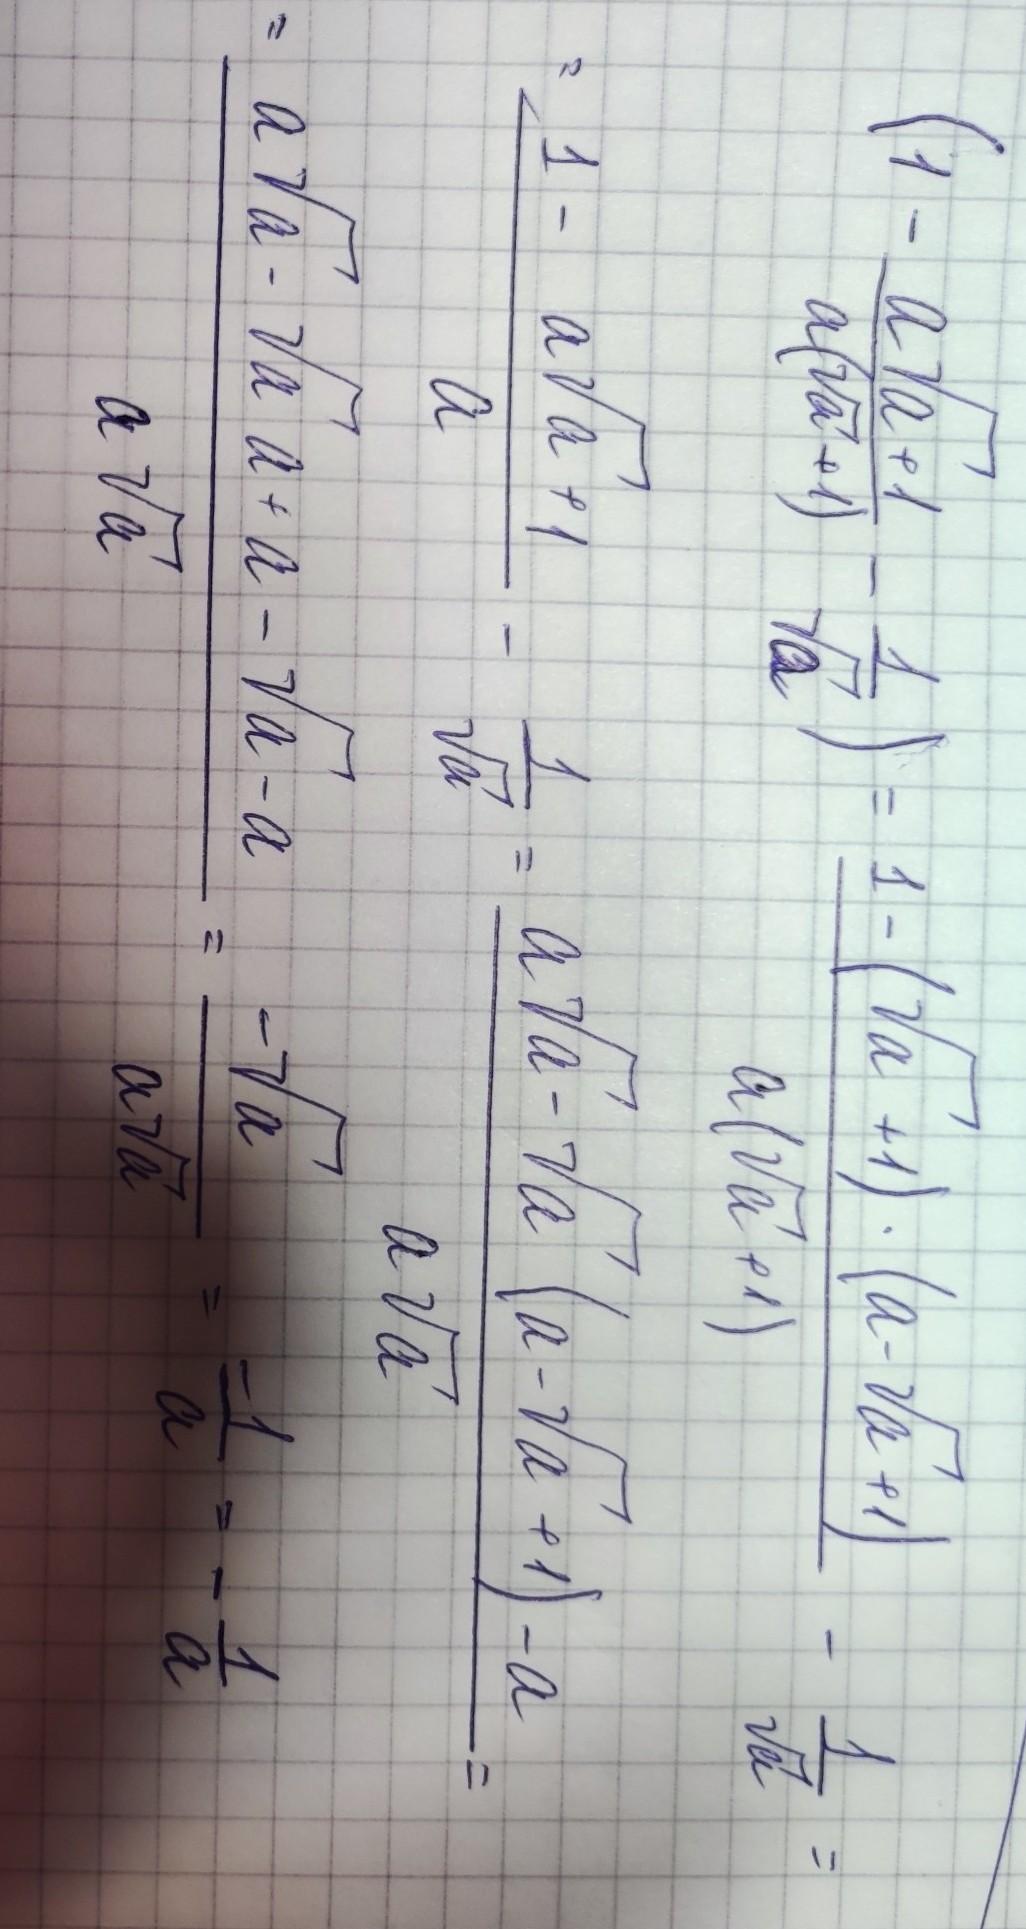 (1 - \frac{a\sqrt{a}+1}{a(\sqrt{a}+1)} - \frac{1}{\sqrt{a}}) = \frac{1-(\sqrt{a}+1)·(a-\sqrt{a}+1)}{a(\sqrt{a}+1)} - \frac{1}{\sqrt{a}} =
= \frac{1 - a\sqrt{a}+1}{a} - \frac{1}{\sqrt{a}} = \frac{a\sqrt{a}-\sqrt{a}(a-\sqrt{a}+1)-a}{a\sqrt{a}} =
= \frac{a\sqrt{a}-\sqrt{a}a+a-\sqrt{a}-a}{a\sqrt{a}} = \frac{-\sqrt{a}}{a\sqrt{a}} = \frac{-1}{a} = -\frac{1}{a}